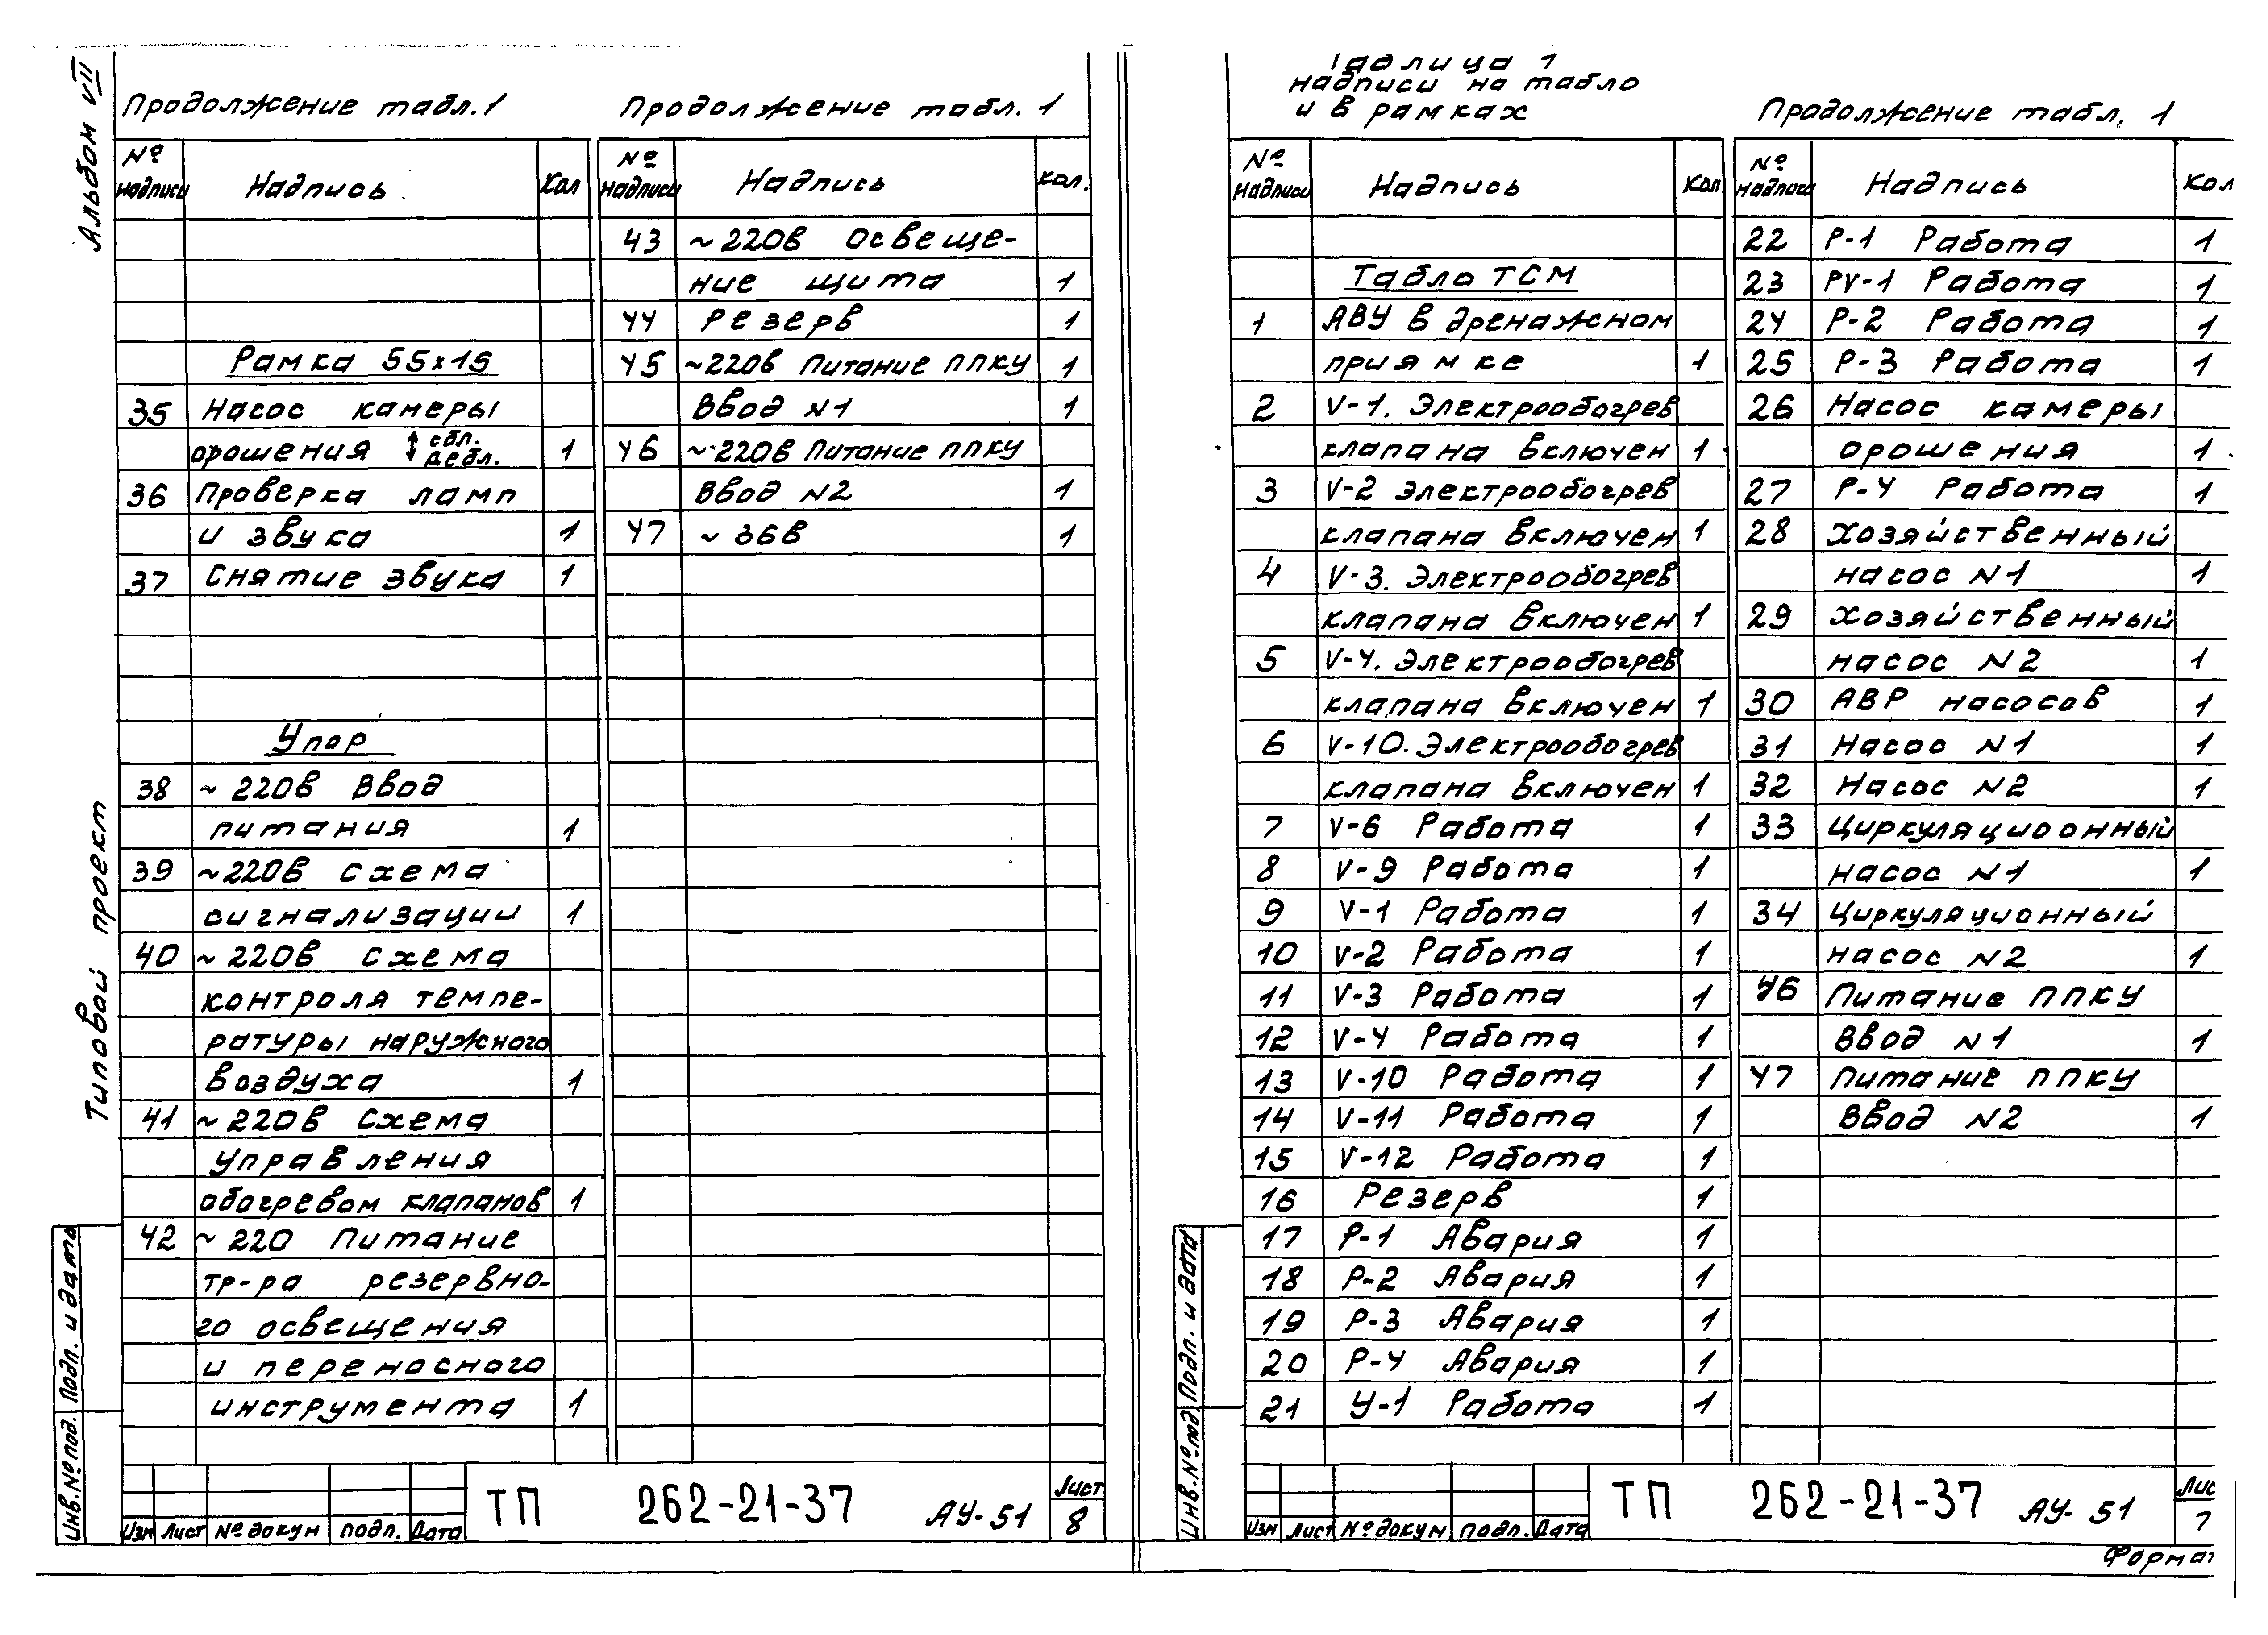 Альбом VII
Типовой проект
Продолжение табл.1
№ надписи Надпись Кол
Рамка 55х15
35 Насос камеры
орошения ↕ сбл. дебл. 1
36 Проверка ламп
и звука 1
37 Снятие звука 1
Упор
38 ~ 220в Ввод
питания 1
39 ~220в схема
сигнализации 1
40 ~ 220в схема
контроля темпе-
ратуры наружного
воздуха 1
41 ~ 220в схема
управления
обогревом клапанов 1
42 ~ 220 Питание
тр-ра резервно-
го освещения
и переносного
инструмента 1
Продолжение табл. 1
№ надписи Надпись кол.
43 ~220в освеще-
ние щита 1
44 Резерв 1
45 ~220в Питание ППКУ 1
Ввод N1 1
46 ~220в Питание ППКУ
Ввод N2 1
47 ~ 36в 1
Инв.№под. Подп. и дата
Изм Лист № докум подп. Дата
ТП 262-21-37 АУ-51
Лист
8
Таблица 1
надписи на табло
и в рамках
№ надписи Надпись Кол
Табло ТСМ
1 АВУ в дренажном
приямке 1
2 V-1. Электрообогрев
клапана включен 1
3 V-2 Электрообогрев
клапана включен 1
4 V-3. Электрообогрев
клапана включен 1
5 V-4. Электрообогрев
клапана включен 1
6 V-10. Электрообогрев
клапана включен 1
7 V-6 Работа 1
8 V-9 Работа 1
9 V-1 Работа 1
10 V-2 Работа 1
11 V-3 Работа 1
12 V-4 Работа 1
13 V-10 Работа 1
14 V-11 Работа 1
15 V-12 Работа 1
16 Резерв 1
17 Р-1 Авария 1
18 Р-2 Авария 1
19 Р-3 Авария 1
20 Р-4 Авария 1
21 У-1 Работа 1
Продолжение табл. 1
№ надписи Надпись кол
22 Р-1 Работа 1
23 РV-1 Работа 1
24 Р-2 Работа 1
25 Р-3 Работа 1
26 Насос камеры
орошения 1
27 Р-4 Работа 1
28 Хозяйственный
насос N1 1
29 Хозяйственный
насос N2 1
30 АВР насосов 1
31 Насос N1 1
32 Насос N2 1
33 Циркуляциоонный
насос N1 1
34 Циркуляционный
насос N2 1
46 Питание ППКУ
Ввод N1 1
47 Питание ППКУ
Ввод N2 1
Инв.№под. Подп. и дата
Изм Лист № докум подп. Дата
ТП 262-21-37 АУ-51
Лис
7
Формат